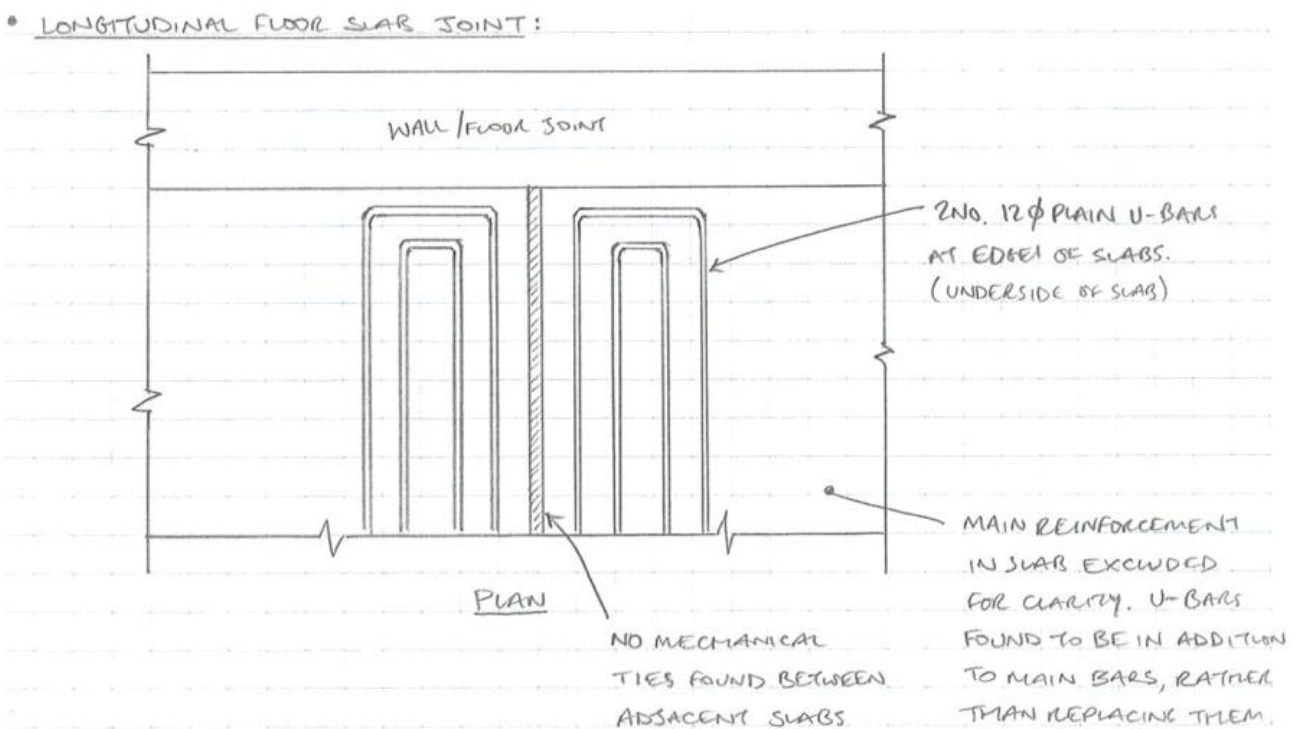 • LONGITUDINAL FLOOR SLAB JOINT:
WALL/FLOOR JOINT
2NO. 12φ PLAIN U-BARS
AT EDGES OF SLABS.
(UNDERSIDE OF SLAB)
PLAN
NO MECHANICAL
TIES FOUND BETWEEN
ADJACENT SLABS
MAIN REINFORCEMENT
IN SLAB EXCLUDED
FOR CLARITY. U-BARS
FOUND TO BE IN ADDITION
TO MAIN BARS, RATHER
THAN REPLACING THEM.